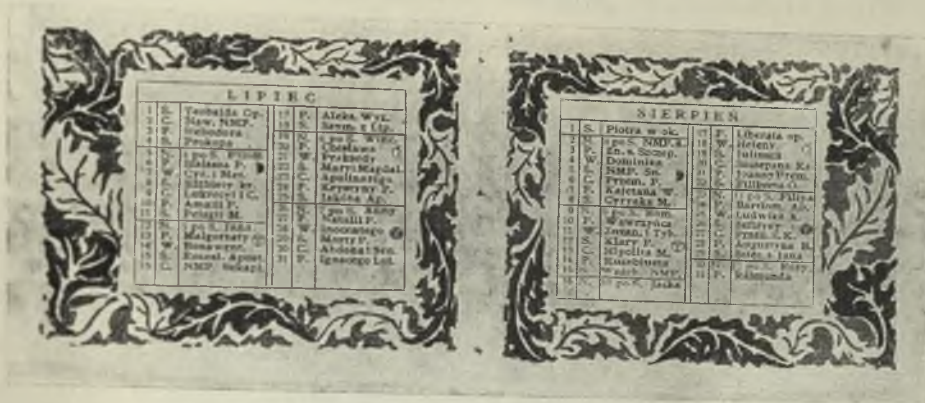 LIPIEC
1 S. Teobalda Op.
2 C. Naw. NMP.
3 P. Heliodora
4 S. Prokopa
5 N. po S.
6 P. P.
7 W. Cyr. i Met.
8 S. Elżbiety kr.
9 C.
10 P. Amalii P.
11 S. Pelagii M.
12 N. po S. Jana
13 P. Małgorzaty
14 W. Bonawent.
15 S. Rozesł. Apost.
16 C. NMP. Szkapl.
17 P. Aleks. Wyz.
18 S. Szym. z Lip.
19 N. po S. Winc.
20 P. Czesława
21 W. Praksedy
22 S. Maryi Magdal.
23 C. Apolinarego
24 P. Krystyny P.
25 S. Jakóba Ap.
26 N. po S. Anny
27 P. Natalii P.
28 W. Inocentego
29 S. Marty P.
30 C. Abdona i Sen.
31 P. Ignacego Loj.
SIERPIEŃ
1 S. Piotra w ok.
2 N. po S. NMP. A.
3 P. Zn. s. Szczep.
4 W. Dominika
5 S. NMP. Śn.
6 C. Przem. P.
7 P. Kajetana W.
8 S. Cyryaka M.
9 N. po S. Rom.
10 P. Wawrzyńca
11 W. Zuzan. i Tyb.
12 S. Klary P.
13 C. Hipolita M.
14 P. Euzebiusza
15 S. Wnieb. NMP.
16 N. po S. Jacka
17 P. Liberata op.
18 W. Heleny
19 S. Juliusza
20 C.
21 P. Joanny Frem.
22 S. Filiberta O.
23 N. po S. Filipa
24 P. Bartłom. Ap.
25 W. Ludwika K.
26 S. Zefiryny
27 C. Przen. S. K.
28 P. Augustyna B.
29 S. Ścięc. s. Jana
30 N. po S. Róży
31 P. Rajmunda